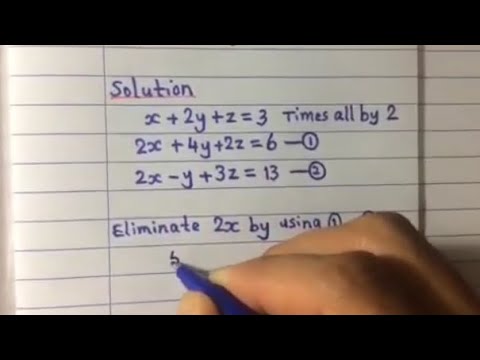 Solution
x + 2y + z = 3 Times all by 2
2x + 4y + 2z = 6 — ①
2x - y + 3z = 13 — ②
Eliminate 2x by using ①
5